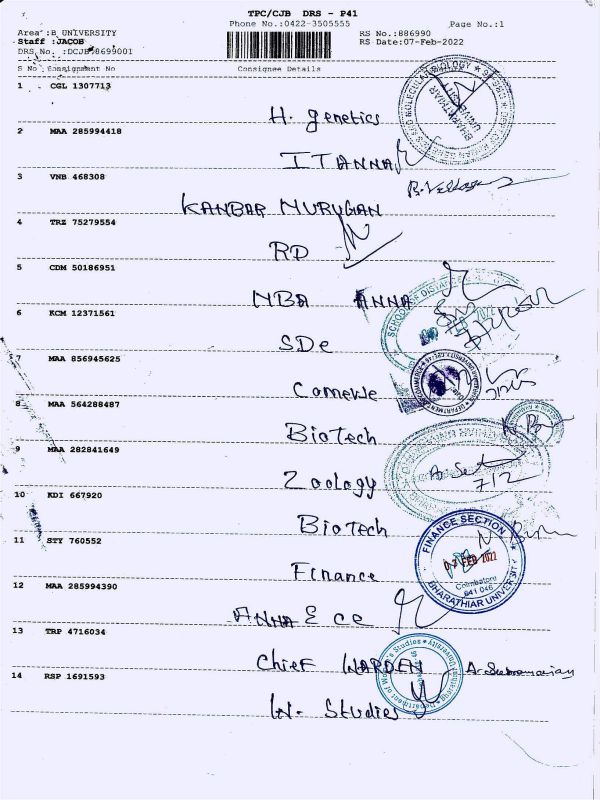 TPC/CJB DRS - P41
Phone No.:0422-3505555 Page No.:1
Area :B_UNIVERSITY RS No.:886990
Staff :JACOB RS Date:07-Feb-2022
DRS No. :DCJB38699001
S No Consignment No Consignee Details
1 CGL 1307713
H. genetics
2 MAA 285994418
IT ANNA
3 VNB 468308
KANBAR MURUGAN
4 TRZ 75279554
RD
5 CDM 50186951
NBA ANNA
6 KCM 12371561
SDe
7 MAA 856945625
8 MAA 564288487
BioTech
9 MAA 282841649
Zoology
10 KDI 667920
BioTech
11 STY 760552
Finance
FINANCE SECTION
07 FEB 2022
Coimbatore
641 046
BHARATHIAR UNIVERSITY
12 MAA 285994390
ANNA E ce
13 TRP 4716034
Chief WARDEN
14 RSP 1691593
W. Studies